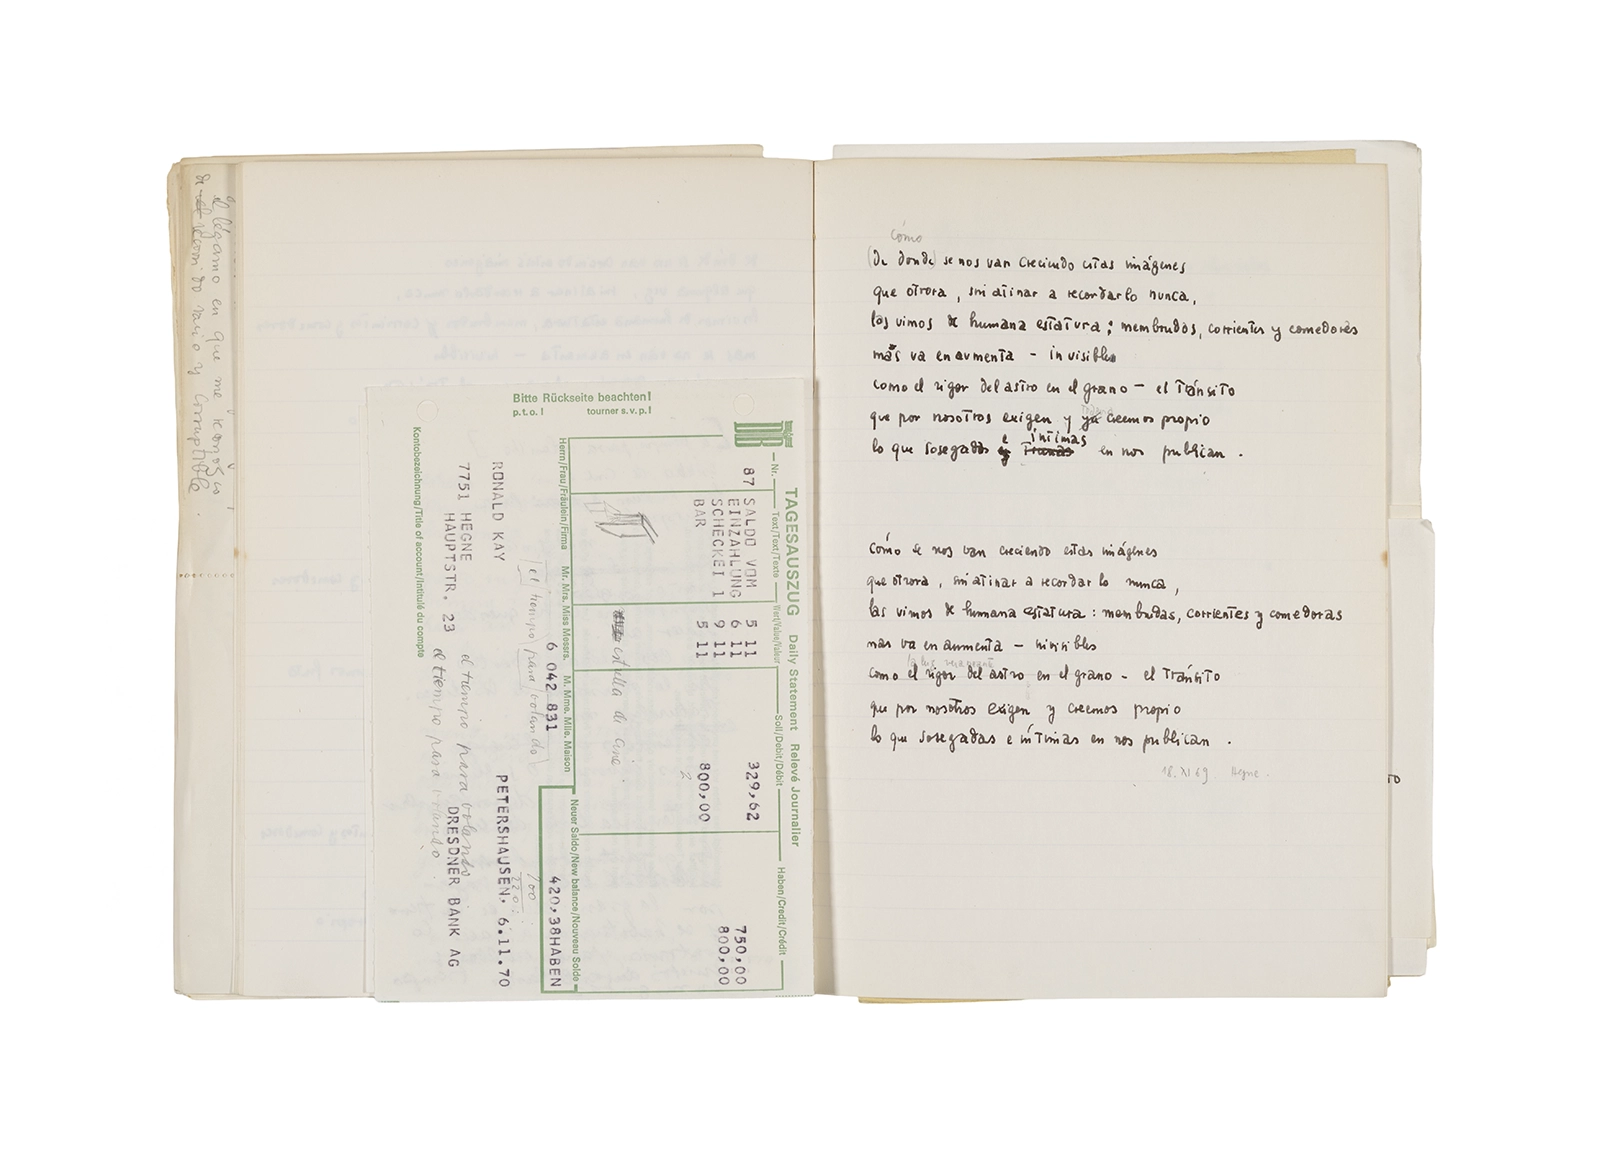 el légamo en que me reconozco,
de recorrido vacío y corruptible.
Bitte Rückseite beachten!
p.t.o.! tourner s.v.p.!
TAGESAUSZUG Daily Statement Relevé Journalier
Nr. Text/Text/Texte Wert/Value/Valeur Soll/Debit/Débit Haben/Credit/Crédit
87 SALDO VOM 5 11 329,62
EINZAHLUNG 6 11 750,00
SCHECKEI 1 9 11 800,00
BAR 5 11 800,00
2
estilla de cine
Neuer Saldo/New balance/Nouveau Solde
Herrn/Frau/Fräulein/Firma Mr. Mrs. Miss Messrs. M. Mme. Mlle. Maison
6 042 831 420,38HABEN
el tiempo para volando 700
220
RONALD KAY PETERSHAUSEN, 6.11.70
7751 HEGNE el tiempo para volando
HAUPTSTR. 23 DRESDNER BANK AG
el tiempo para volando.
Kontobezeichnung/Title of account/Intitulé du compte
cómo
(De donde) se nos van creciendo estas imágenes
que otrora, sin atinar a recordarlo nunca,
los vimos de humana estatura; membrudos, corrientes y comedores
más va en aumenta - invisibles
como el rigor del astro en el grano - el tránsito
que por nosotros exigen y ya creemos propio
e íntimas
lo que sosegados y en nos publican.
Cómo se nos van creciendo estas imágenes
que otrora, sin atinar a recordarlo nunca,
las vimos de humana estatura: membrudas, corrientes y comedoras
mas va en aumenta - invisibles
como el rigor del astro en el grano - el tránsito
que por nosotros exigen y creemos propio
lo que sosegadas e íntimas en nos publican.
18.XI 69 Hegne.